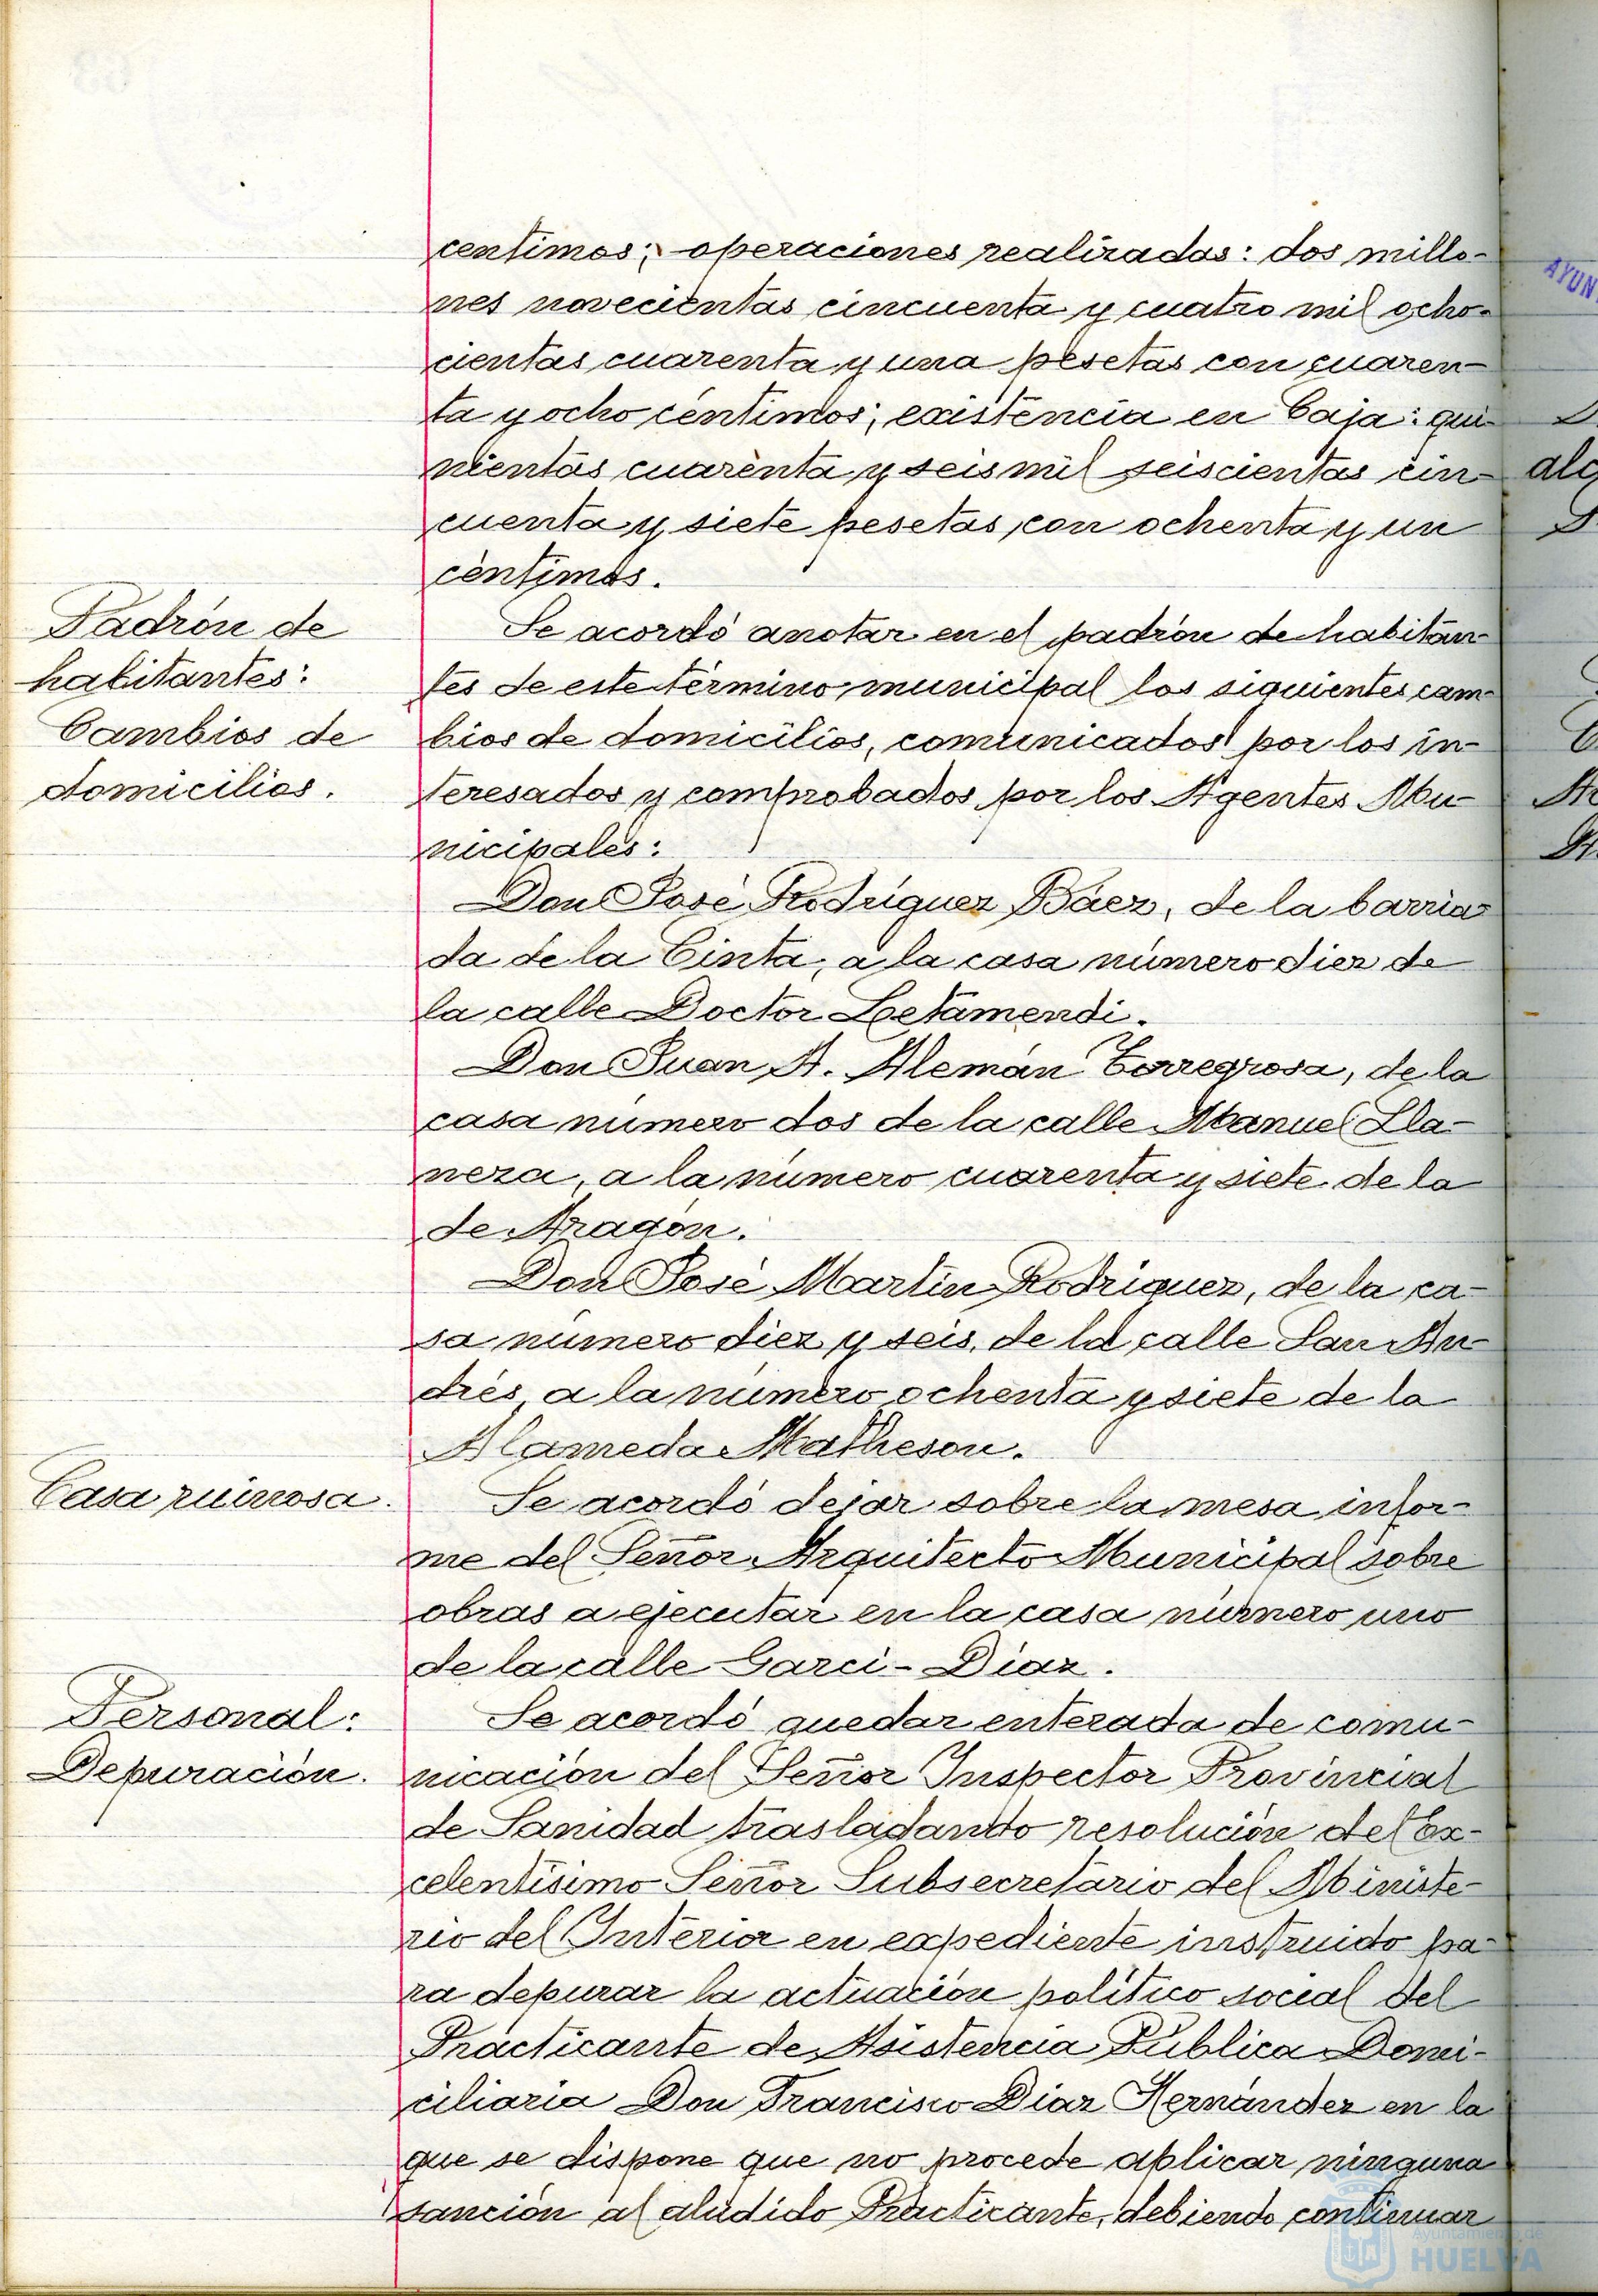 centimos; operaciones realizadas: dos millo-
nes novecientas cincuenta y cuatro mil ocho-
cientas cuarenta y una pesetas con cuaren-
ta y ocho céntimos; existencia en Caja: qui-
nientas cuarenta y seis mil seiscientas cin-
cuenta y siete pesetas con ochenta y un
céntimos.
Padrón de
habitantes:
Cambios de
domicilios.
Se acordó anotar en el padrón de habitan-
tes de este término municipal los siguientes cam-
bios de domicilios, comunicados por los in-
teresados y comprobados por los Agentes Mu-
nicipales:
Don José Rodríguez Báez, de la barria-
da de la Cinta, a la casa número diez de
la calle Doctor Letamendi.
Don Juan A. Alemán Torregrosa, de la
casa número dos de la calle Manuel Lla-
neza, a la número cuarenta y siete de la
de Aragón.
Don José Martin Rodriguez, de la ca-
sa número diez y seis, de la calle San An-
drés, a la número ochenta y siete de la
Alameda Matheson.
Casa ruinosa.
Se acordó dejar sobre la mesa infor-
me del Señor Arquitecto Municipal sobre
obras a ejecutar en la casa número uno
de la calle Garci-Diaz.
Personal:
Depuración.
Se acordó quedar enterada de comu-
nicación del Señor Inspector Provincial
de Sanidad trasladando resolución del Ex-
celentísimo Señor Subsecretario del Ministe-
rio del Interior en expediente instruido pa-
ra depurar la actuación político social del
Practicante de Asistencia Pública Domi-
ciliaria Don Francisco Díaz Hernández en la
que se dispone que no procede aplicar ninguna
sanción al aludido Practicante, debiendo continuar
AYUN
alc
Ayuntamiento de
HUELVA